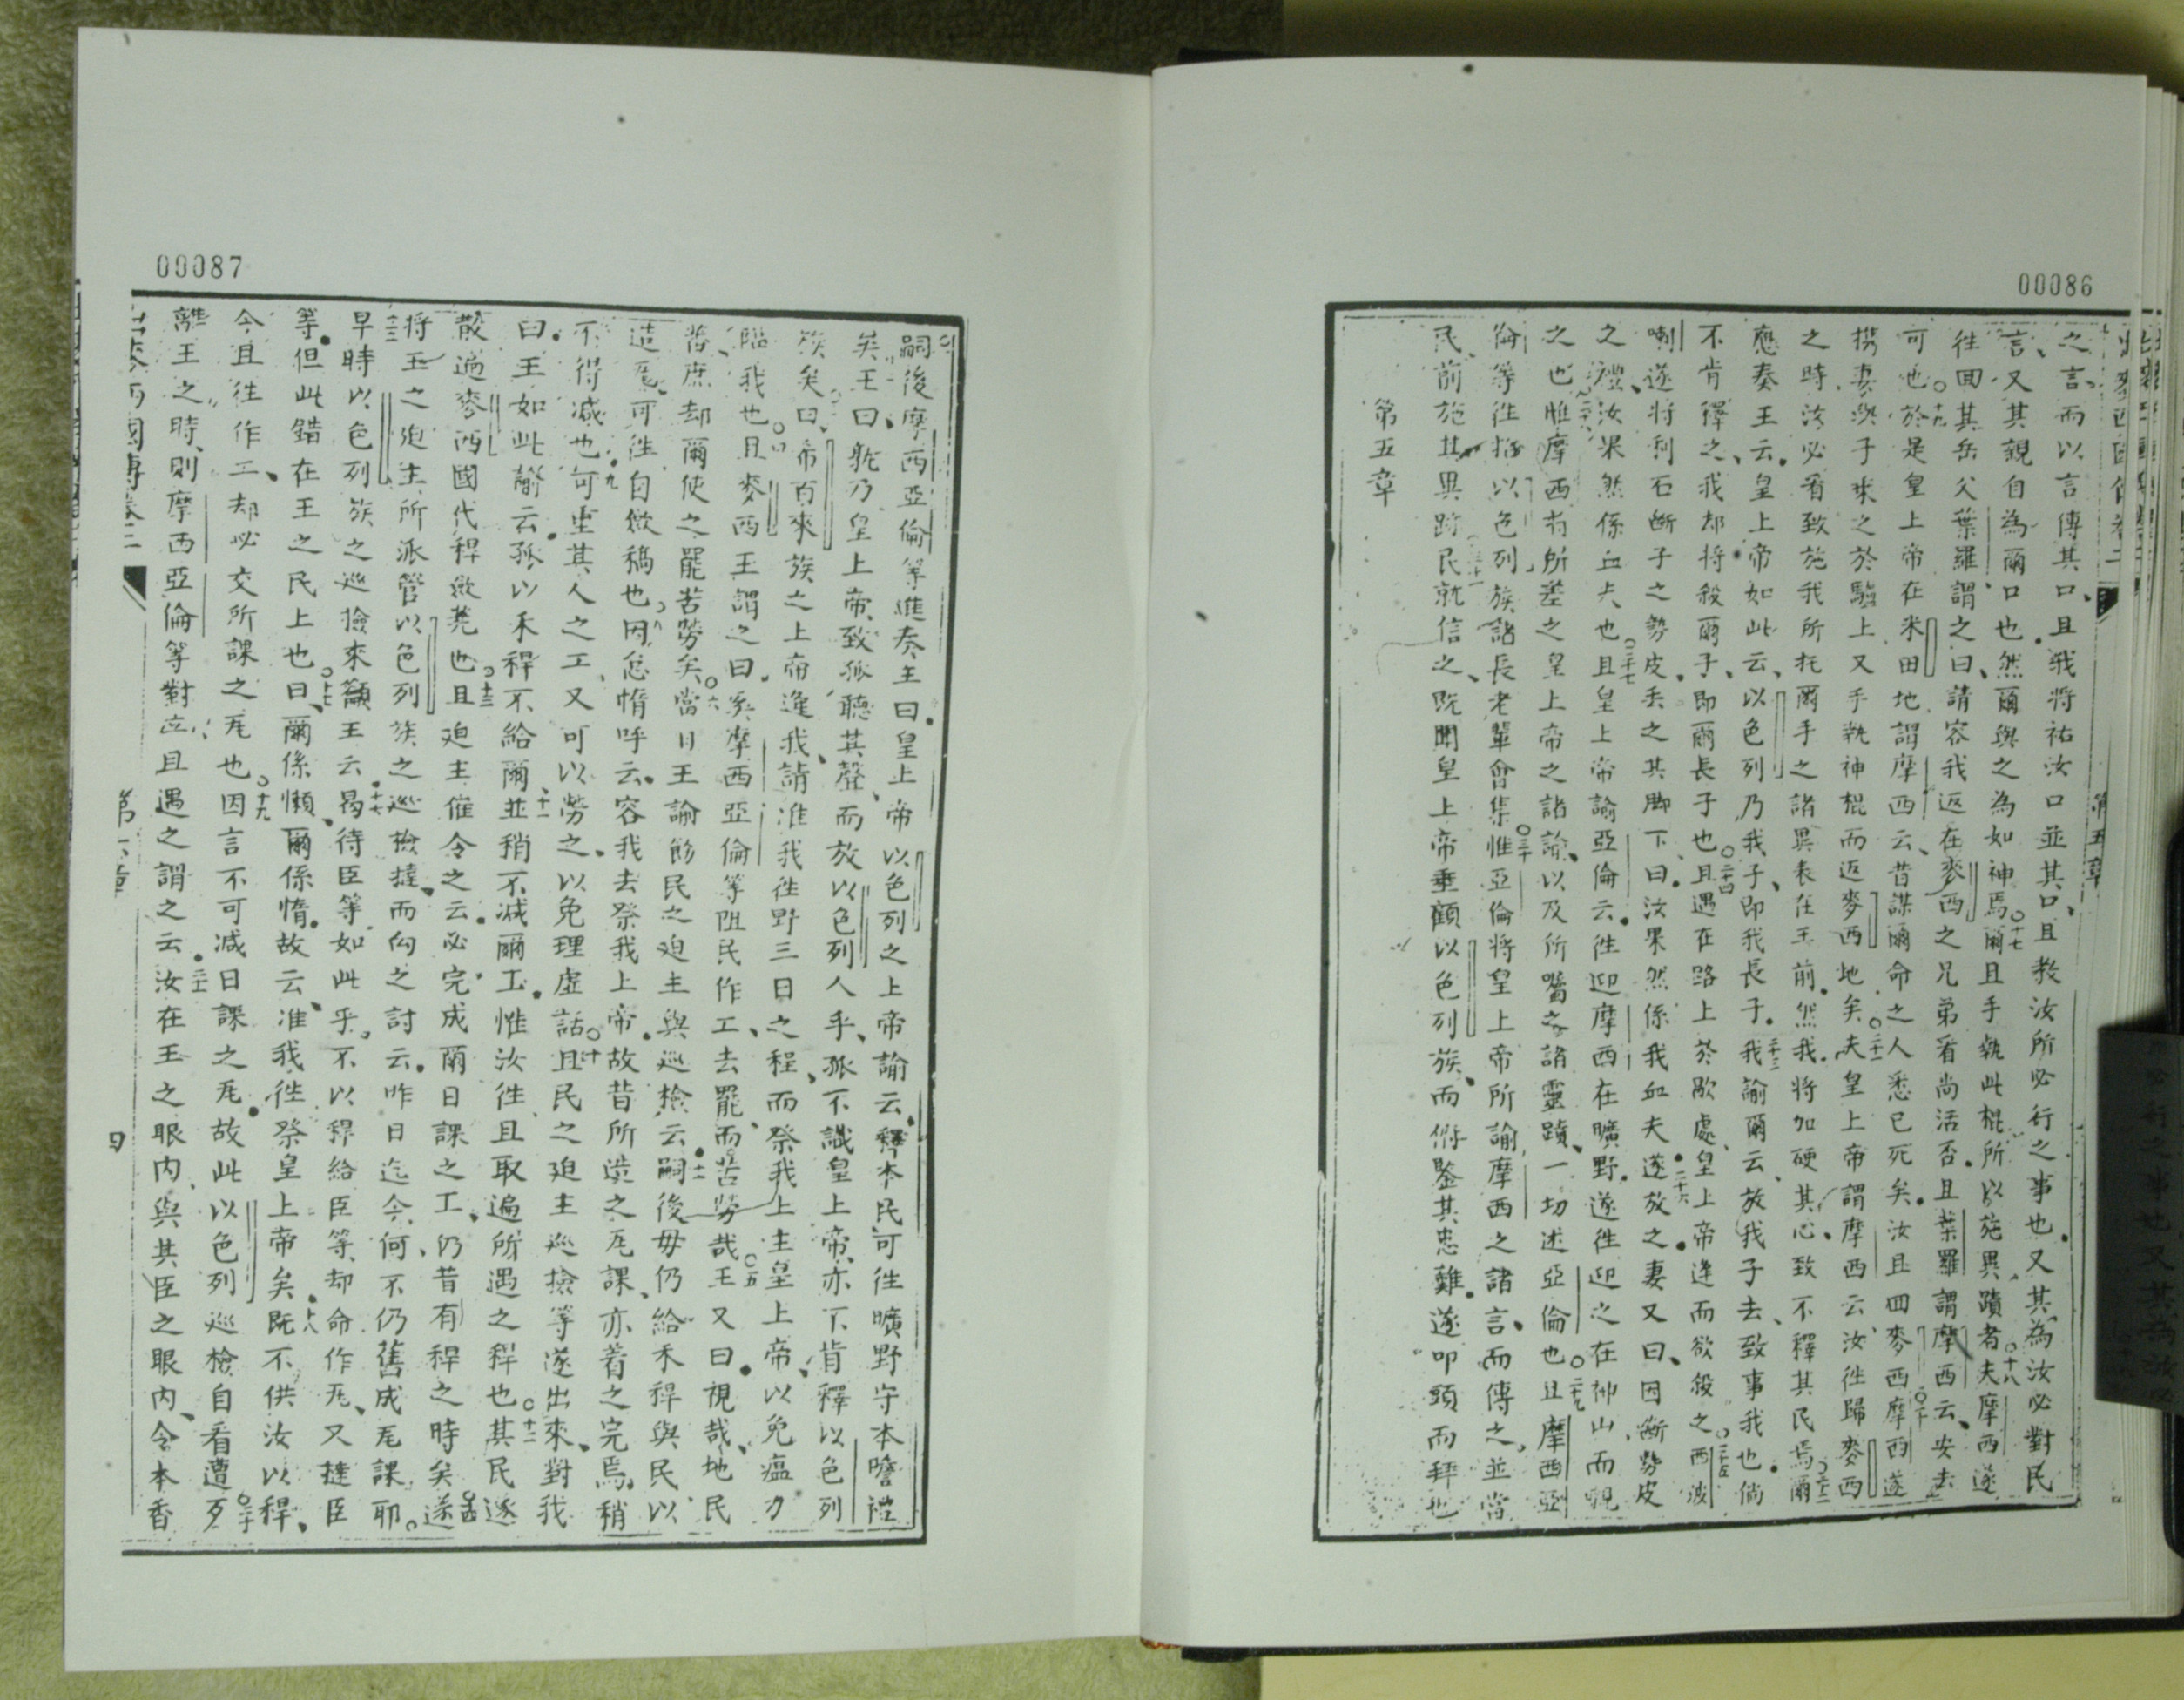 00086
之言、而以言傳其口、且我將祐汝口並其口、且教汝所必行之事也、又其為汝必對民
言、又其親自為爾口也、然爾與之為如神焉○十七爾且手執此棍所以施異蹟者○十八夫摩西遂
往回其岳父葉羅謂之曰、請容我返在麥西之兄弟看尚活否、且葉羅謂摩西云、安去
可也○十九於是皇上帝在米田地謂摩西云、昔謀爾命之人悉已死矣、汝且回麥西○二十摩西遂
携妻與子乘之於驢上又手執神棍而返麥西地矣○二十一夫皇上帝謂摩西云、汝徃歸麥西
之時、汝必看致施我所托爾手之諸異表在王前、然我將加硬其心、致不釋其民焉○二十二爾
應奏王云、皇上帝如此云、以色列乃我子、即我長子、二十三我諭爾云、放我子去、致事我也、倘
不肯釋之、我却將殺爾子、即爾長子也○二十四且遇在路上於歇處、皇上帝逢而欲殺之○二十五西波
喇遂將利石斷子之勢皮、丢之其脚下、曰、汝果然係我血夫、二十六遂放之、妻又曰、因斷勢皮
之禮、汝果然係血夫也○二十七且皇上帝諭亞倫云、徃迎摩西在曠野、遂徃迎之在神山、而親
之也、二十八惟摩西將所差之皇上帝之諸諭、以及所囑之諸靈蹟、一切述亞倫也○二十九且摩西亞
倫等徃括以色列族諸長老輩會集○三十惟亞倫將皇上帝所諭摩西之諸言、而傳之、並當
民前施其異跡、三十一民就信之、既聞皇上帝垂顧以色列族、而俯鑒其患難、遂叩頭而拜也
第五章
00087
嗣後摩西亞倫等進奏王曰、皇上帝以色列之上帝諭云、釋本民可徃曠野守本瞻禮
矣、王曰、孰乃皇上帝、致孤聽其聲、而放以色列人乎、孤不識皇上帝、亦不肯釋以色列
族矣、曰、希百來族之上帝逢我、請准我徃野三日之程、而祭我上主皇上帝、以免瘟力
臨我也○四且麥西王謂之曰、奚摩西亞倫等阻民作工、去罷、而苦勞哉○五王又曰、視哉、地民
眾庶、却爾使之罷苦勞矣○六當日王諭飭民之迫主與巡檢云、七嗣後毋仍給禾稈與民、以
造瓦、可徃自斂稿也○八因怠惰呼云、容我去祭我上帝、故昔所造之瓦課、亦着之完焉、稍
不得減也、九可重其人之工、又可以勞之、以免理虛話○十且民之迫主巡檢等遂出來、對我
曰、王如此諭云、孤以禾稈不給爾、十一並稍不減爾工、惟汝徃、且取遍所遇之稈也○十二其民遂
散遍麥西國代稈斂蒭也○十三且迫主催令之云、必完成爾日課之工、仍昔有稈之時矣○十四遂
將王之迫主所派管以色列族之巡檢撻、而向之討云、昨日迄今、何不仍舊成瓦課耶。
早時以色列族之巡撿來籲王云、曷待臣等如此乎、不以稈給臣等、却命作瓦、又撻臣
等、但此錯在王之民上也○十七曰、爾係懶、爾係惰、故云、准我徃祭皇上帝矣、十八既不供汝以稈、
今且徃作工、却必交所課之瓦也○十九因言不可減日課之瓦、故此以色列巡檢自看遭歹○二十
離王之時、則摩西亞倫等對立、且遇之謂之云、二十一汝在王之眼內、與其臣之眼內、令本香
出麥西國傳卷二
第六章
四